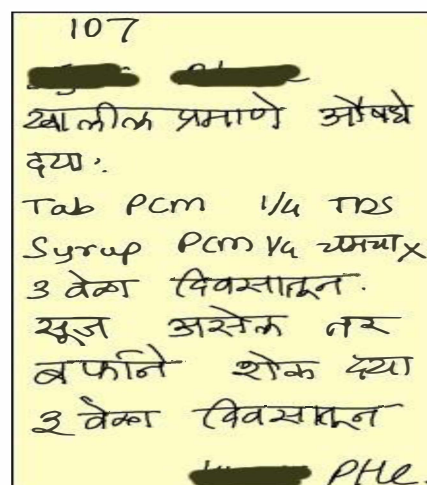 107
खालील प्रमाणे औषधे
दया.
Tab PCM 1/4 TDS
Syrup PCM 1/4 चमचा x
3 वेळा दिवसातून.
सूज असेल तर
बर्फाने शेक दया
3 वेळा दिवसातून
PHC.